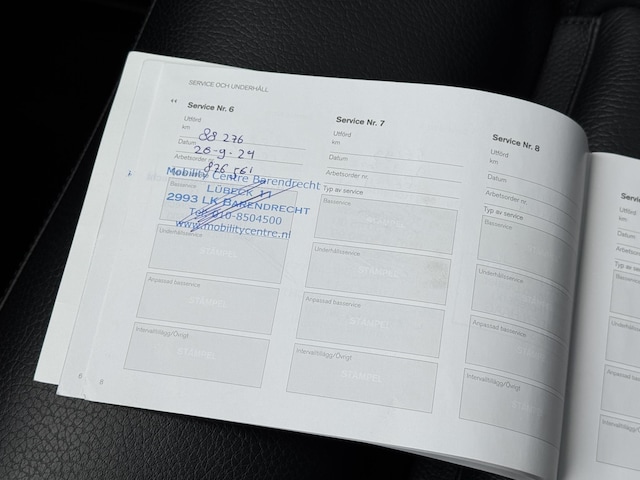 SERVICE OCH UNDERHÅLL
Service Nr. 6
Utförd
km 88 276
Datum 20-9-24
Arbetsorder nr. 876 561
Mobility Centre Barendrecht
LÜBECK 11
2993 LK BARENDRECHT
Tel: 010-8504500
www.mobilitycentre.nl
Basservice
Underhållsservice
STÄMPEL
Anpassad basservice
STÄMPEL
Intervalltillägg/Övrigt
STÄMPEL
Service Nr. 7
Utförd
km
Datum
Arbetsorder nr.
Typ av service
Basservice
Underhållsservice
STÄMPEL
Anpassad basservice
STÄMPEL
Intervalltillägg/Övrigt
STÄMPEL
Service Nr. 8
Utförd
km
Datum
Arbetsorder nr.
Typ av service
Basservice
Underhållsservice
Anpassad basservice
Intervalltillägg/Övrigt
6
8